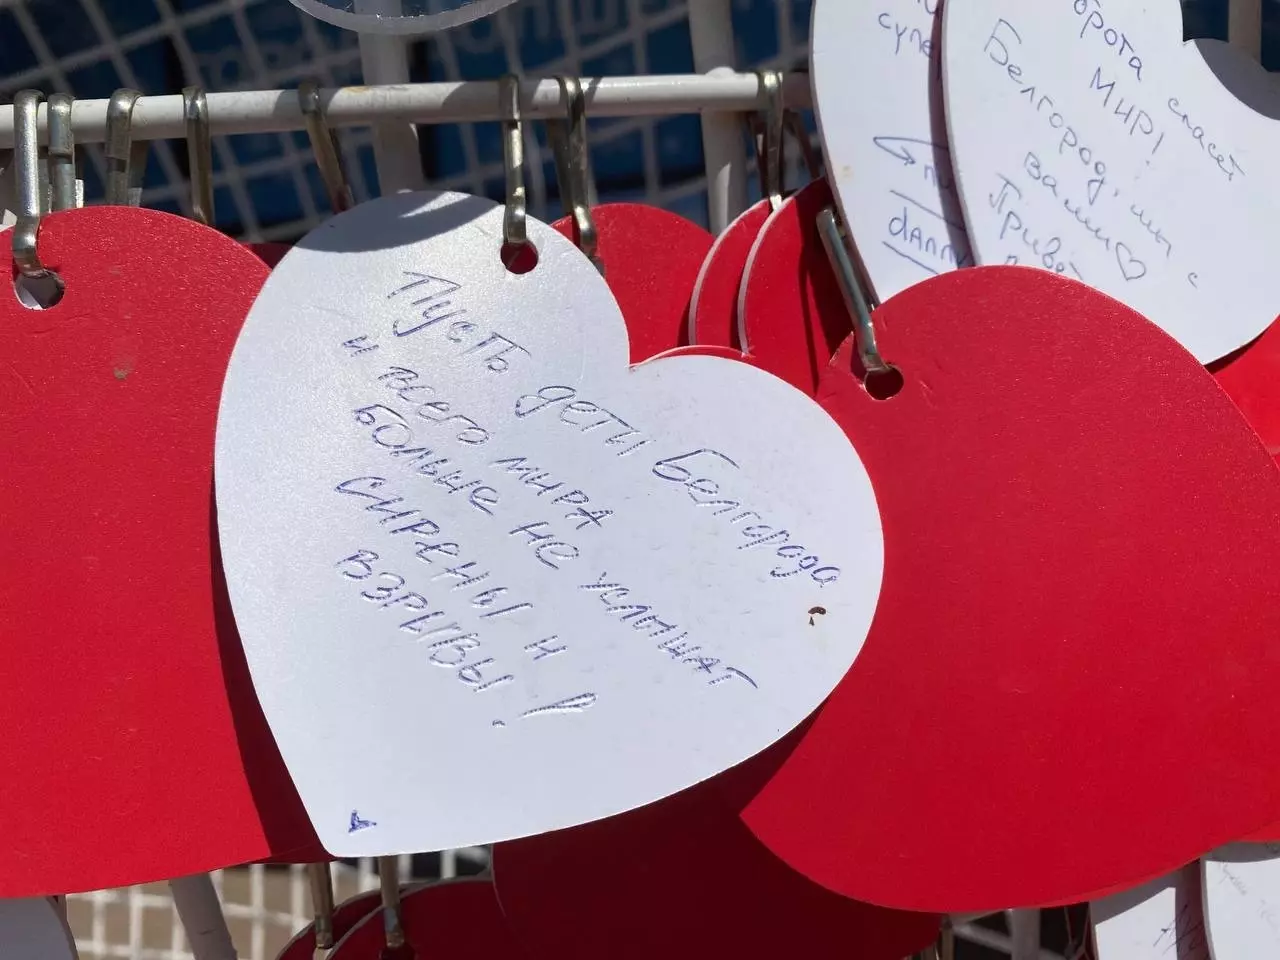 Пусть дети Белгорода
и всего мира
больше не услышат
сирены и
взрывы!
брота спасёт
Мир!
Белгород, мы с
вами♡
Привет
супе